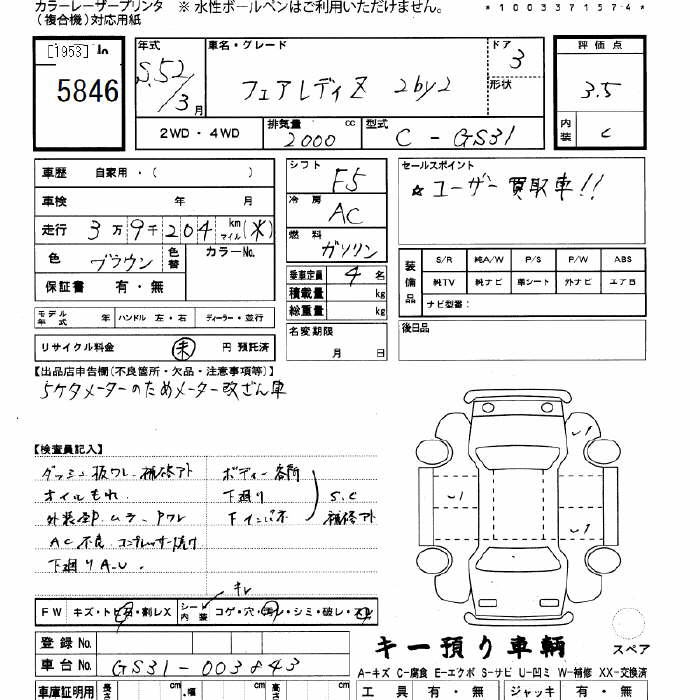 カラーレーザープリンタ ※ 水性ボールペンはご利用いただけません。 *1003371574*
(複合機)対応用紙
[1953]
5846
年式 S.52/3月
車名・グレード フェアレディZ 2by2
ドア 3
形状
評価点 3.5
内装 C
2WD・4WD 排気量 2000 cc 型式 C-GS31
車歴 自家用・( )
車検 年 月
走行 3万9千204 km マイル(*)
色 ブラウン 色替 カラーNo.
保証書 有・無
モデル年式 年 ハンドル 左・右 ディーラー・並行
リサイクル料金 未 円 預託済
シフト F5
冷房 AC
燃料 ガソリン
乗車定員 4名
積載量 kg
総重量 kg
名変期限 月 日
セールスポイント
☆ユーザー買取車!!
装備品 S/R 純A/W P/S P/W ABS
純TV 純ナビ 革シート 外ナビ エアB
ナビ型番:
後日品
【出品店申告欄(不良箇所・欠品・注意事項等)】
5ケタメーターのためメーター改ざん車
【検査員記入】
ダッシュ板ワレ、補修アト
オイルもれ
外装 ムラ Pワレ
AC不良 コンプレッサー
下廻りA.U.
ボディー各所
下廻り
下インパネ
S.C
補修アト
キレ
FW キズ・トビ石・割レX シート内装 コゲ・穴・汚レ・シミ・破レ・スレ
登録No.
車台No. GS31-003843
車庫証明用 長さ cm 幅 cm 高さ cm
キー預り車輌
スペア
A-キズ C-腐食 E-エクボ S-サビ U-凹ミ W-補修 XX-交換済
工具 有・無 ジャッキ 有・無